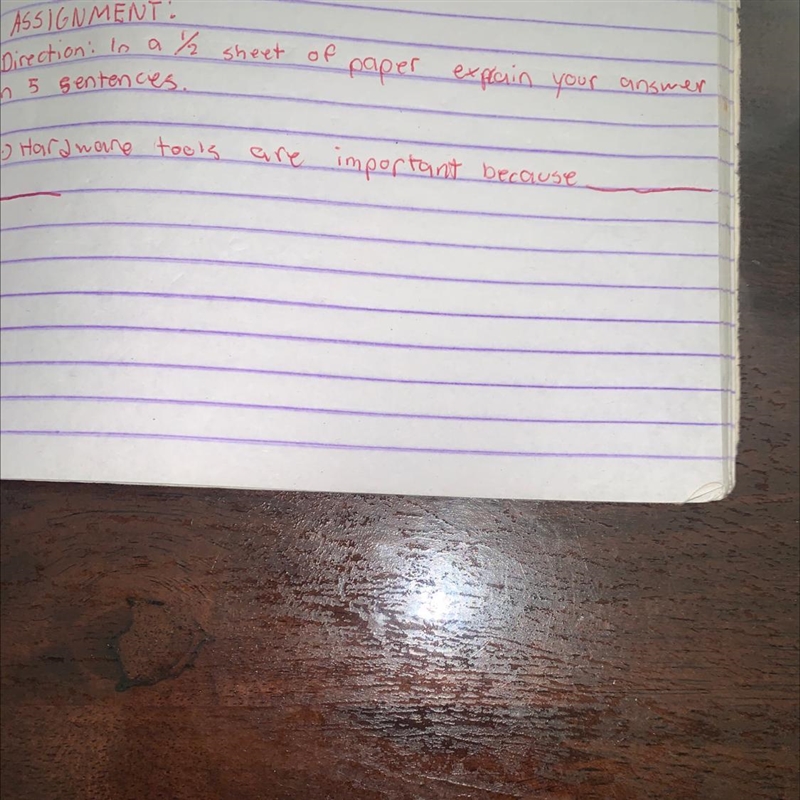 ASSIGNMENT:
Direction: In a 1/2 sheet of paper explain your answer
n 5 sentences.
) Hardware tools are important because ________
____